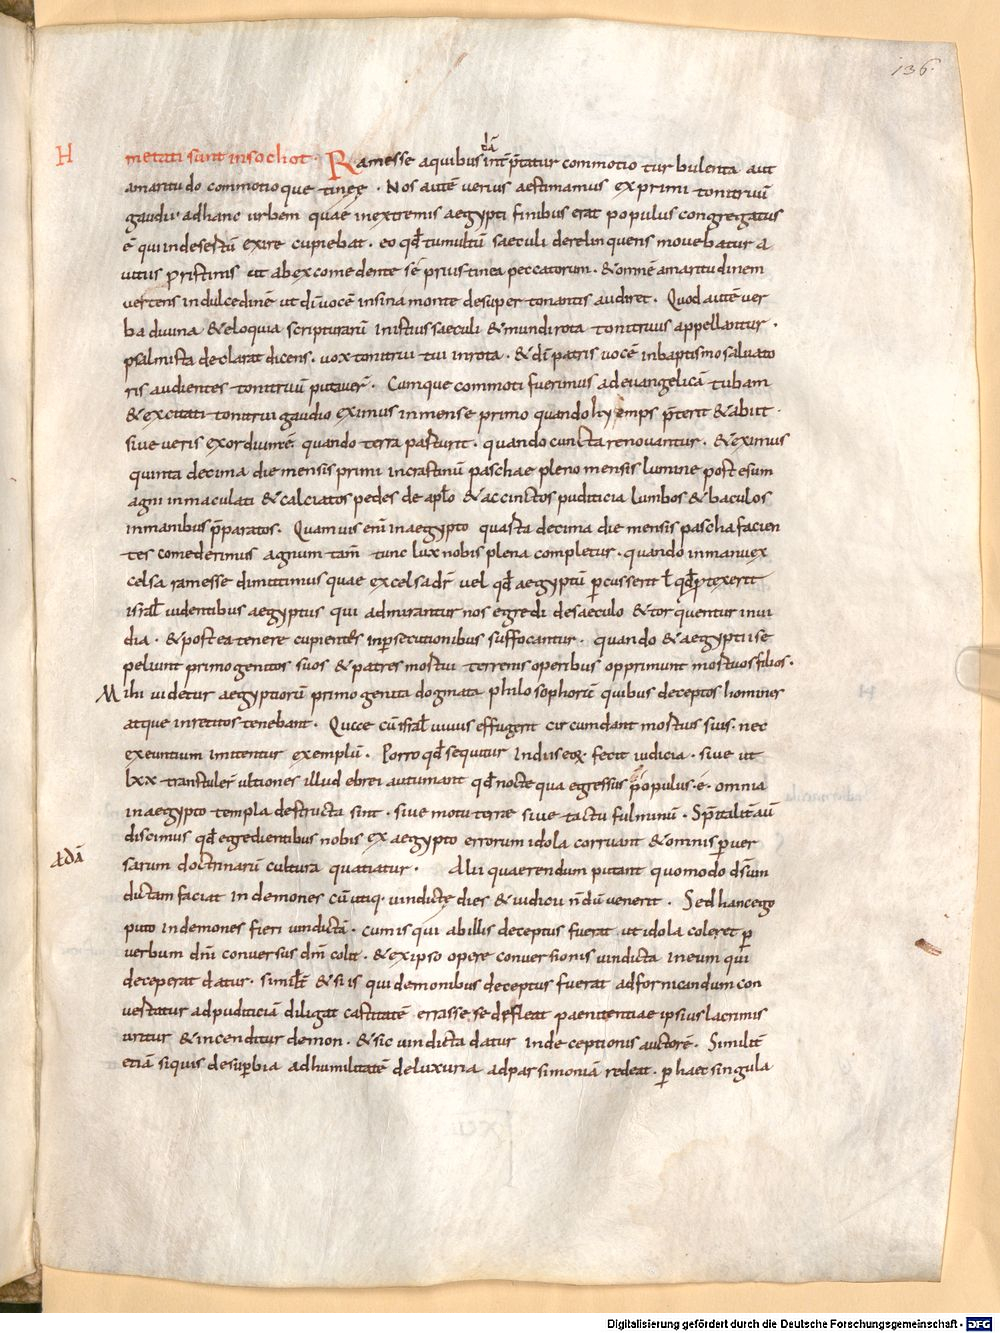 136.
H
metati sunt insochot. Ramesse aquibusdā intp̄tatur commotio turbulenta aut
amaritudo commotioque tineę. Nos autē verius aestimamus exprimi tonitruū
gaudii. adhanc urbem quae inextremis aegypti finibus erat populus congregatus
ē quiindesertū exire cupiebat. eo qđ tumultū saeculi derelinquens movebatur a
vitiis pristinis ut abexcomedente sē prius tinea peccatorum. & omnē amaritudinem
vertens indulcedinē ut dī vocē insina monte desuper tonantis audiret. Quod autē ver
ba divina & eloquia scripturarū inistius saeculi & mundi rota tonitruus appellantur.
psalmista declarat dicens. vox tonitrui tui inrota. & dī patris vocē inbaptismo salvato
ris audientes tonitruū putaver̄. Cumque commoti fuerimus adevangelicā tubam
& excitati tonitrui gaudio eximus inmense primo quando hyemps p̄terit & abiit.
sive veris exordiumē. quando terra parturit. quando cuncta renovantur. & eximus
quinta decima die mensis primi incrastinū paschae pleno mensis lumine post esum
agni inmaculati & calciatos pedes de aplo & accinctos pudicitia lumbos & baculos
inmanibus p̄paratos. Quamvis enī inaegypto quarta decima die mensis pascha facien
tes comederimus agnum tam̄ tunc lux nobis plena completur. quando inmanuex
celsa ramesse dimittimus quae excelsa dr̄ vel qđ aegyptū percusserit ł qđ ptexerit
isrł videntibus aegyptiis qui admirantur nos egredi desaeculo & torquentur invi
dia. & postea tenere cupientes inpersecutionibus suffocantur. quando & aegyptii se
peliunt primogenitos suos & patres mortui terrenis operibus opprimunt mortuos filios.
Mihi videtur aegyptiorū primogenita dogmata philosophorū quibus deceptos homines
atque inretitos tenebant. Quę ce cū isrł vivus effugerit circumdant mortuis suis. nec
exeuntium imitentur exemplū. Porro qđ sequitur indiis eor̄ fecit iudicia. sive ut
lxx transtuler̄ ultiones illud ebrei autumant qđ nocte qua egressus populus. ē. omnia
inaegypto templa destructa sint. sive motu terre sive tactu fulminū. Sp̄italit̄ aū
discimus qđ egredientibus nobis ex aegypto errorum idola corruant & omnis perver
sarum doctrinarū cultura quatiatur. Alii quaerendum putant quomodo ds̄ vin
adā
dictam faciat indemones cū utiq; vindictę dies & iudicii n̄dū venerit. Sed hanc ego
puto indemones fieri vindictā. cum is qui abillis deceptus fuerat ut idola coleret p
verbum dn̄i conversus dn̄m colit. & exipso opere conversionis vindicta ineum qui
deceperat datur. simil̄t & si is qui demonibus deceptus fuerat adfornicandum con
vertatur adpudiciciā diligat castitatē errasse se defleat paenitentiae ipsius lacrimis
uritur & incenditur demon. & sic vindicta datur indeceptionis auctorē. Similit̄
etiā siquis desup̄bia adhumilitatē deluxuria adparsimoniā redeat. p haec singula
Digitalisierung gefördert durch die Deutsche Forschungsgemeinschaft - DFG